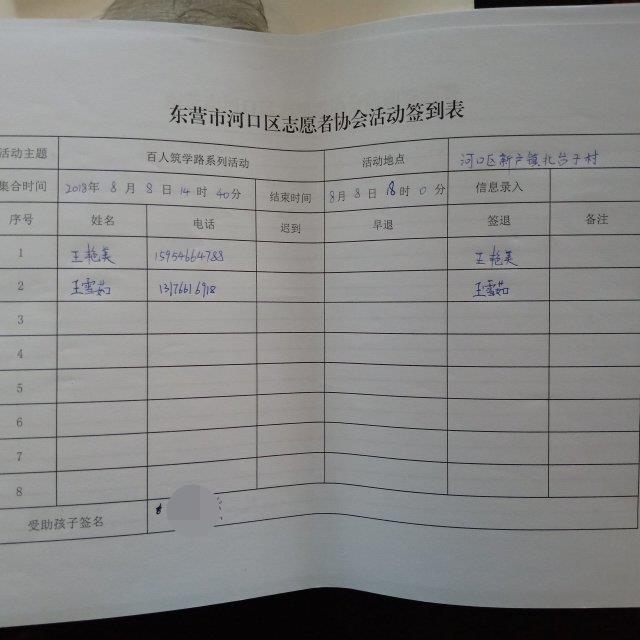 东营市河口区志愿者协会活动签到表
活动主题 百人筑学路系列活动 活动地点 河口区新户镇扎台子村
集合时间 2018年 8月 8日 14时 40分 结束时间 8月 8日 18时 0分 信息录入
序号 姓名 电话 迟到 早退 签退 备注
1 王艳美 15954664788 王艳美
2 王雪茹 王雪茹
3
4
5
6
7
8
受助孩子签名